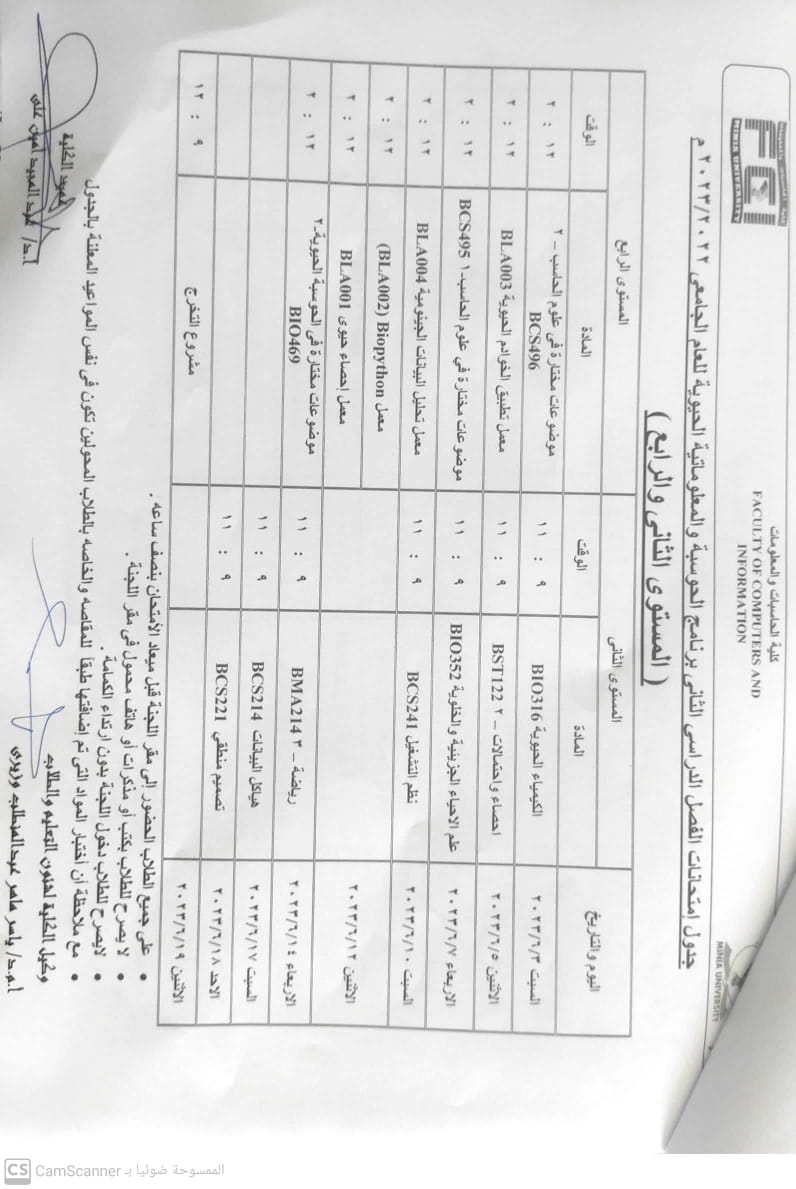 كلية الحاسبات والمعلومات
FACULTY OF COMPUTERS AND
INFORMATION
FCI
MINIA UNIVERSITY
MINIA UNIVERSITY
جدول إمتحانات الفصل الدراسى الثانى برنامج الحوسبة والمعلوماتية الحيوية للعام الجامعى ٢٠٢٣/٢٠٢٢ م
( المستوى الثانى والرابع )
اليوم والتاريخ المستوى الثانى المستوى الرابع
المادة الوقت المادة الوقت
السبت ٢٠٢٣/٦/٣ الكيمياء الحيوية BIO316 ٩ : ١١ موضوعات مختارة في علوم الحاسب – ٢ BCS496 ١٢ : ٢
الاثنين ٢٠٢٣/٦/٥ احصاء واحتمالات – ٢ BST122 ٩ : ١١ معمل تطبيق الخوادم الحيوية BLA003 ١٢ : ٢
الاربعاء ٢٠٢٣/٦/٧ علم الاحياء الجزيئية والخلوية BIO352 ٩ : ١١ موضوعات مختارة في علوم الحاسب-١ BCS495 ١٢ : ٢
السبت ٢٠٢٣/٦/١٠ نظم التشغيل BCS241 ٩ : ١١ معمل تحليل البيانات الجينومية BLA004 ١٢ : ٢
الاثنين ٢٠٢٣/٦/١٢ معمل Biopython (BLA002) ١٢ : ٢
معمل إحصاء حيوى BLA001 ١٢ : ٢
الاربعاء ٢٠٢٣/٦/١٤ رياضة – ٣ BMA214 ٩ : ١١ موضوعات مختارة في الحوسبة الحيوية-٢ BIO469 ١٢ : ٢
السبت ٢٠٢٣/٦/١٧ هياكل البيانات BCS214 ٩ : ١١
الاحد ٢٠٢٣/٦/١٨ تصميم منطقي BCS221 ٩ : ١١
الاثنين ٢٠٢٣/٦/١٩ مشروع التخرج ٩ : ١٢
• على جميع الطلاب الحضور إلى مقر اللجنة قبل ميعاد الأمتحان بنصف ساعه .
• لا يصرح للطلاب بكتب أو مذكرات أو هاتف محمول فى مقر اللجنة .
• لايصرح للطلاب دخول اللجنة بدون ارتداء الكمامة .
• مع ملاحظة أن أختبار المواد التى تم إضافتها طبقا للمقاصه والخاصه بالطلاب المحولين تكون فى نفس المواعيد المعلنة بالجدول
وكيل الكلية لشئون التعليم والطلاب
أ.م.د/ ياسر ماهر عبدالمطلب وزيرى
عميد الكلية
أ.د/ عبد المجيد أمين على
CS CamScanner الممسوحة ضوئيا بـ